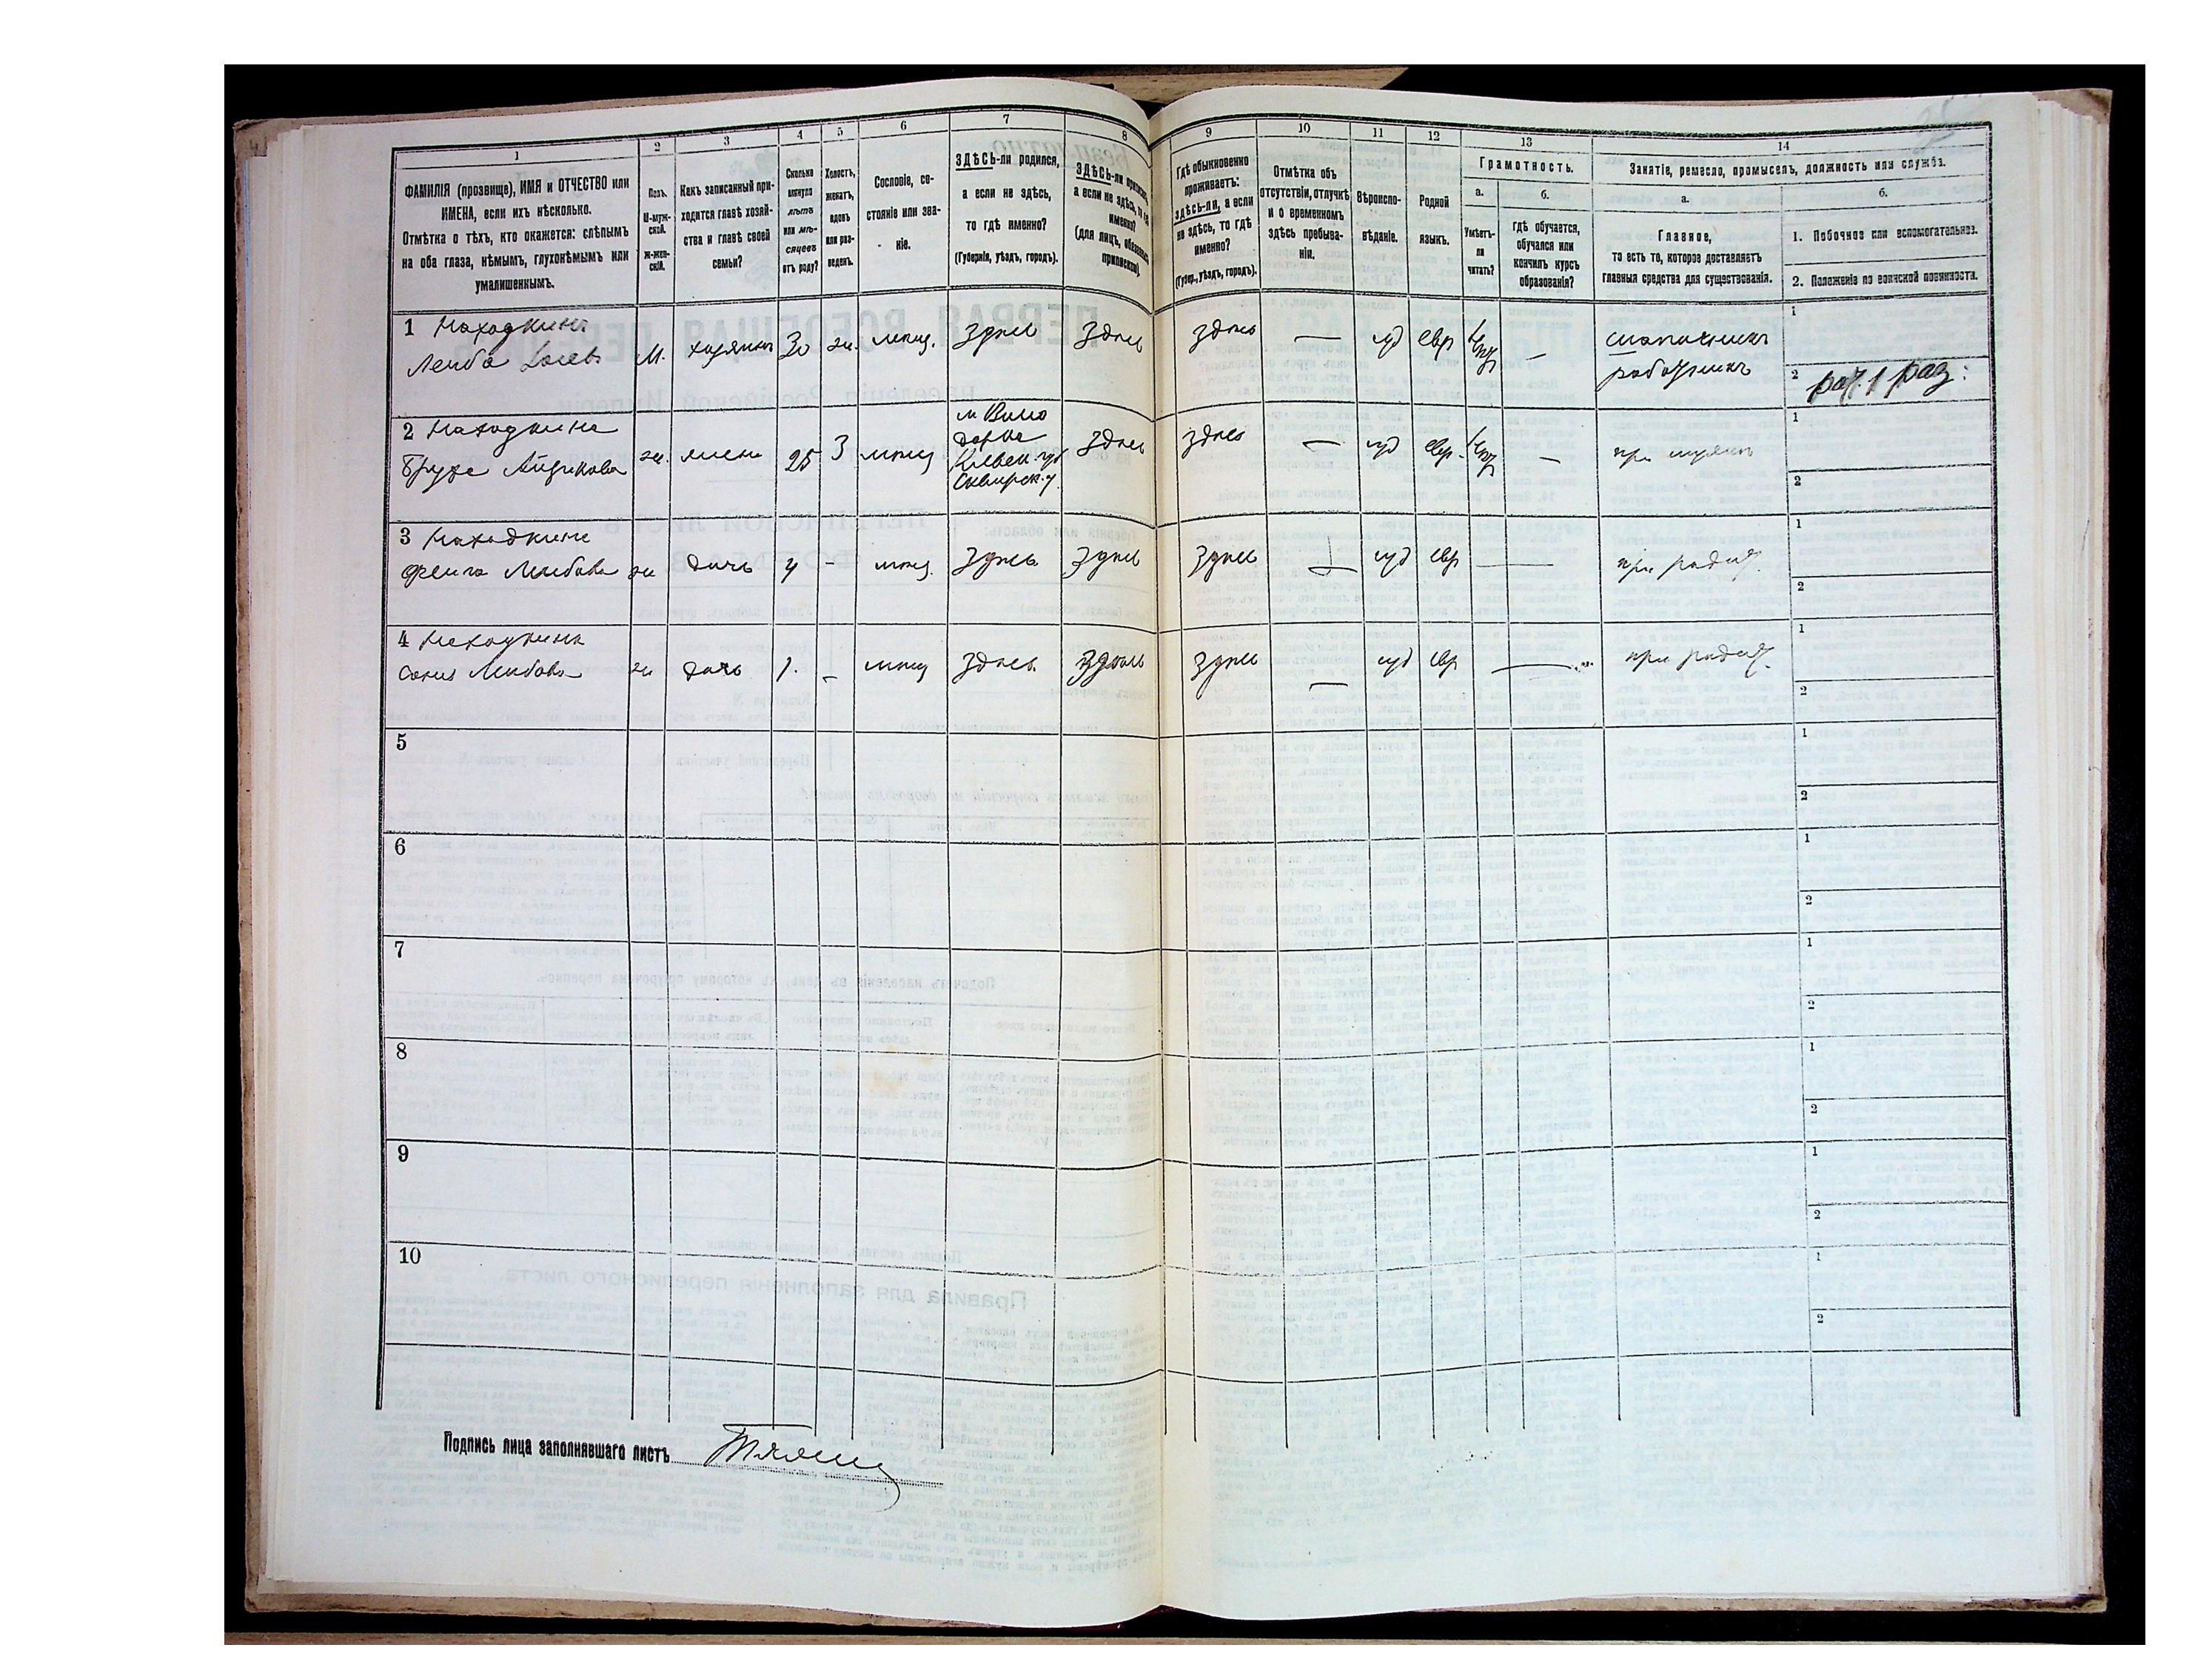 1
2
3
4
5
6
7
8
ФАМИЛІЯ (прозвище), ИМЯ и ОТЧЕСТВО или
ИМЕНА, если ихъ нѣсколько.
Отмѣтка о тѣхъ, кто окажется: слѣпымъ
на оба глаза, нѣмымъ, глухонѣмымъ или
умалишеннымъ.
Полъ.
М-муж-
ской.
Ж-жен-
скій.
Какъ записанный при-
ходится главѣ хозяй-
ства и главѣ своей
семьи?
Сколько
минуло
лѣтъ
или мѣ-
сяцевъ
отъ роду?
Холостъ,
женатъ,
вдовъ
или раз-
веденъ.
Сословіе, со-
стояніе или зва-
ніе.
ЗДѢСЬ-ли родился,
а если не здѣсь,
то гдѣ именно?
(Губернія, уѣздъ, городъ).
ЗДѢСЬ-ли
а если не здѣсь,
именно?
(для лицъ,
9
10
11
12
13
14
Гдѣ обыкновенно
проживаетъ:
здѣсь-ли, а если
не здѣсь, то гдѣ
именно?
(Губер., уѣздъ, городъ).
Отмѣтка объ
отсутствіи, отлучкѣ
и о временномъ
здѣсь пребыва-
ніи.
Вѣроиспо-
вѣданіе.
Родной
языкъ.
Грамотность.
а.
Умѣетъ-
ли
читать?
б.
Гдѣ обучается,
обучался или
кончилъ курсъ
образованія?
Занятіе, ремесло, промыселъ, должность или служба.
а.
Главное,
то есть то, которое доставляетъ
главныя средства для существованія.
б.
1. Побочное или вспомогательное.
2. Положеніе по воинской повинности.
1 Находкинъ
Лейба М. хозяинъ 30 ж. мѣщ. здѣсь здѣсь здѣсь — іуд евр — шапочникъ
1
2
2 Находкина
ж. жена 25 З мѣщ
Кіевск. губ
Сквирск. у.
здѣсь здѣсь — іуд евр. — при мужѣ
1
2
3 Находкина
Лейбова ж дочь 4 - мѣщ. здѣсь здѣсь здѣсь іуд евр — при родит.
1
2
4 Находкина
Лейбова ж дочь 1. - мѣщ здѣсь здѣсь здѣсь — іуд евр — при родит.
1
2
5
1
2
6
1
2
7
1
2
8
1
2
9
1
2
10
1
2
Подпись лица заполнявшаго листъ